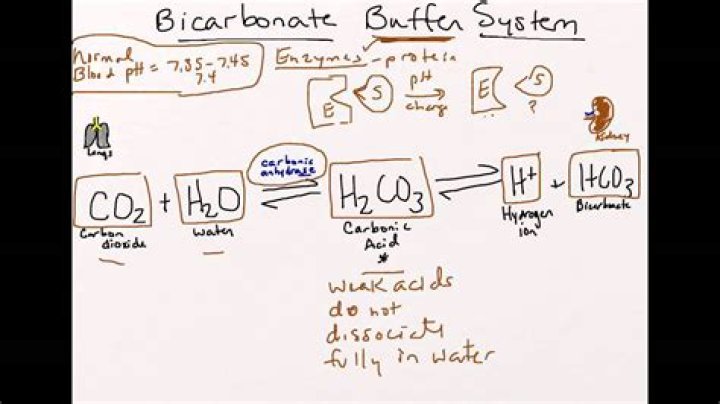 Bicarbonate Buffer System
Normal
Blood pH = 7.35 - 7.45
7.4
Enzymes - protein
E S pH change E S
?
Lungs
Kidney
carbonic
anhydrase
CO₂ + H₂O H₂CO₃ H⁺ + HCO₃
Carbon
dioxide
water
Carbonic
Acid
*
Hydrogen
ion
Bicarbonate
weak acids
do not
dissociate
fully in water